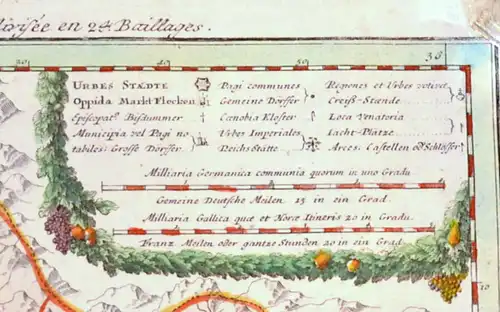 divisée en 24. Baillages.
50 40 50 36
URBES STÆDTE Pagi communes Regiones et Urbes votivæ
Oppida Markt Flecken Gemeine Dörffer Creiß-Stænde
Episcopat9 Bisdummer Cænobia Klöster Loca Venatoria
Municipia vel Pagi no Urbes Imperiales Iacht-Plätze
tabiles. Grosse Dörffer Reichs Stätte Arces. Castellen od. Schlösser
Milliaria Germanica communia quorum in uno Gradu
Gemeine Deutsche Meilen 15 in ein Grad.
Milliaria Gallica quæ et Horæ Itineris 20 in Gradu.
Franz Meilen oder gantze Stunden 20 in ein Grad
10